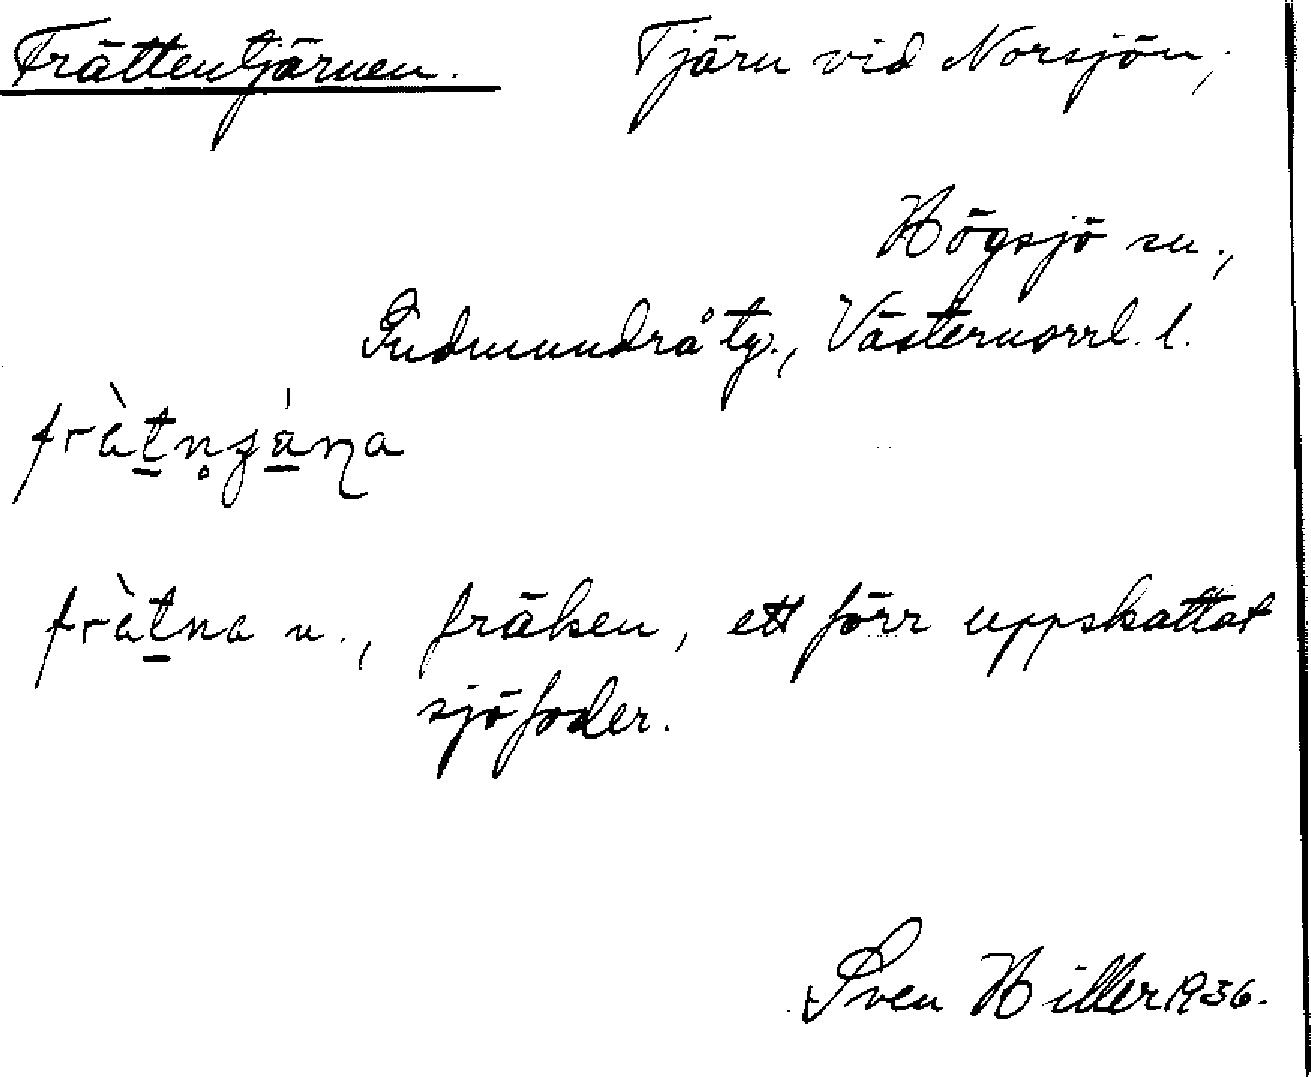 Frättentjärnen. Tjärn vid Norsjön,
Högsjö sn.,
Gudmundrå tg., Västernorrl. l.
fràt̲n̥ʒá̲ɳa
fràt̲na n., fräken, ett förr uppskattat
sjöfoder.
Sven Hiller 1936.